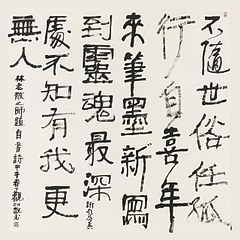 不隨世俗任孤
行自喜年
來筆墨新寫
到靈魂最深
處不知有我更
無人
林老散之師題自書詩甲午春